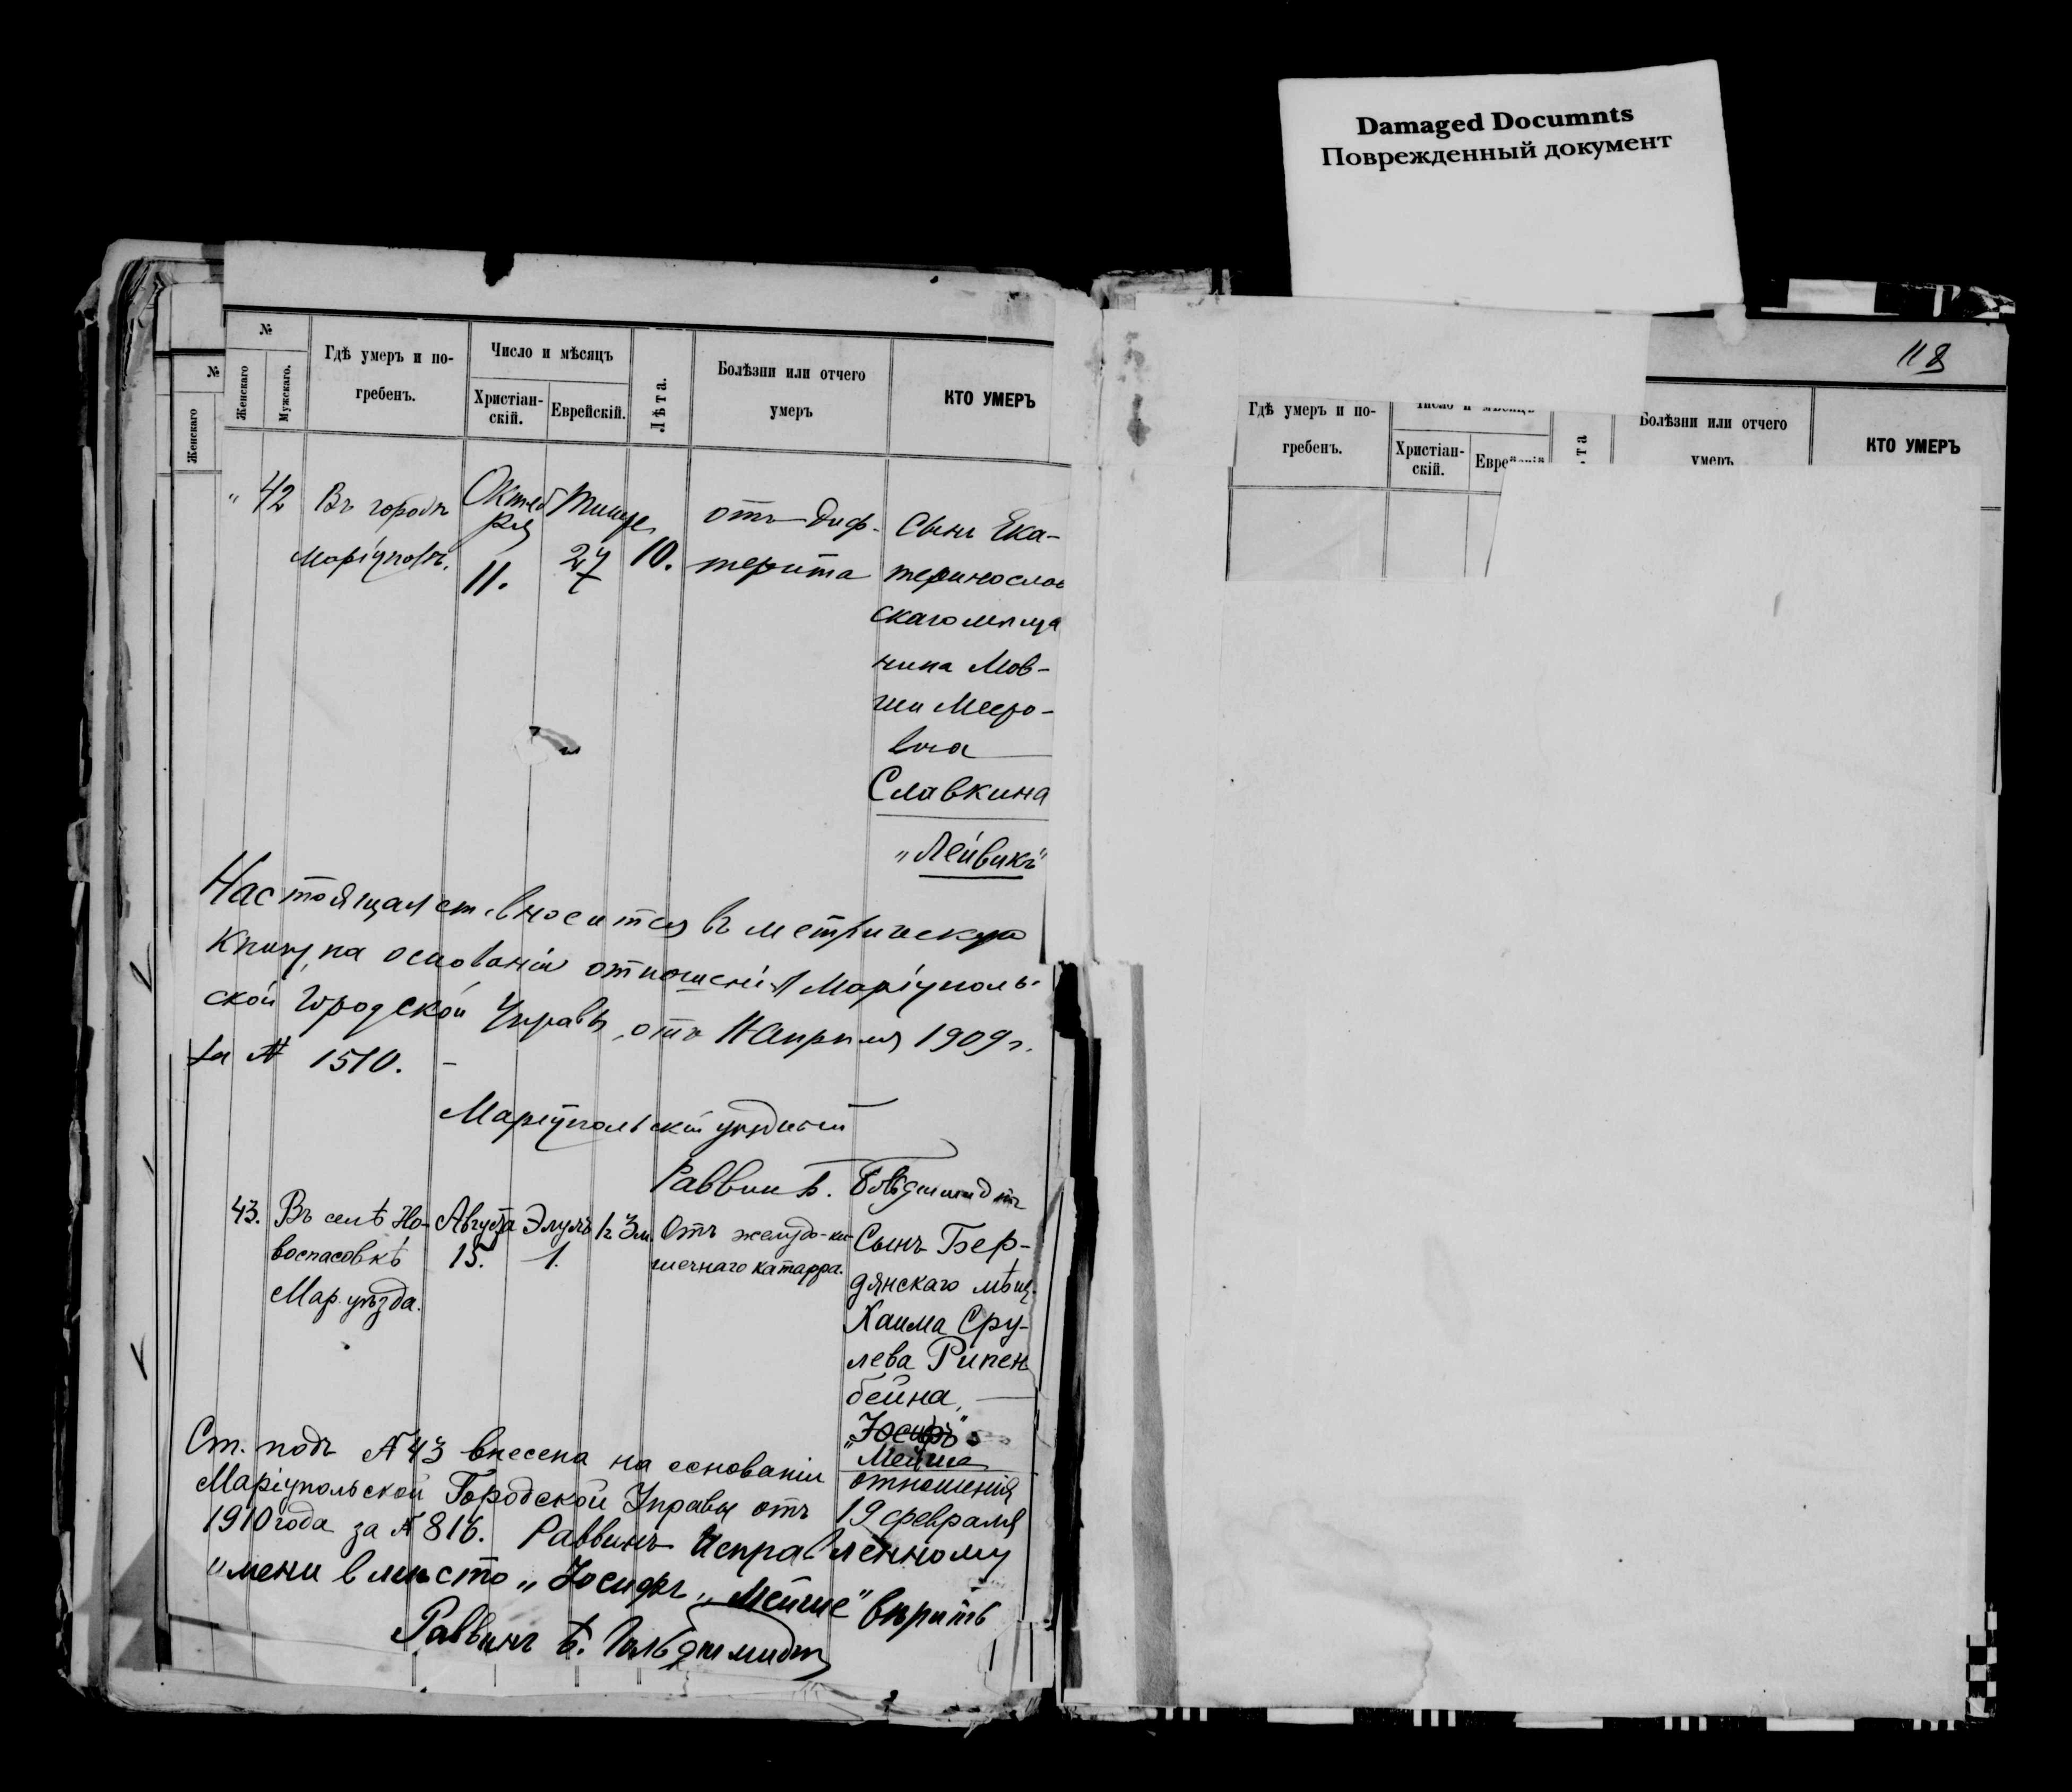 Damaged Documnts
Поврежденный документ
118
№
Женскаго
№
Женскаго
Мужскаго.
Гдѣ умеръ и по-
гребенъ.
Число и мѣсяцъ
Христіан-
скій.
Еврейскій.
Лѣта.
Болѣзни или отчего
умеръ
КТО УМЕРЪ
" 42
Въ городѣ
Маріуполѣ.
Октяб
ря
11.
Тишре
27
10.
отъ диф-
терита
Сынъ Ека-
теринослав
скаго мѣща
нина Мов-
ши Меро-
вича
Славкина
„Лейвикъ"
Настоящая ст. вносится въ метрическую
книгу, на основаніи отношенія Маріуполь-
ской Городской Управы, отъ 11 Апрѣля 1909 г.
за № 1510. –
Маріупольскій уѣздный
Раввинъ Б. Гольдшмидтъ
43.
Въ селѣ Но-
воспасовкѣ
Мар. уѣзда.
Августа
15.
Элулъ
1.
1 г. 3 м.
Отъ желудо-ки-
шечнаго катарра.
Сынъ Бер-
дянскаго мѣщ.
Хаима Сру-
лева Рипен-
бейна,
„Іосифъ"
„Мейше
Ст. подъ № 43 внесена на основаніи отношенія
Маріупольской Городской Управы отъ 19 февраля
1910 года за № 816. Раввинъ Исправленному
имени вмѣсто „Іосифъ „Мейше" вѣрить
Раввинъ Б. Гольдшмидтъ
Гдѣ умеръ и по-
гребенъ.
Число и мѣсяцъ
Христіан-
скій.
Болѣзни или отчего
умеръ
КТО УМЕРЪ